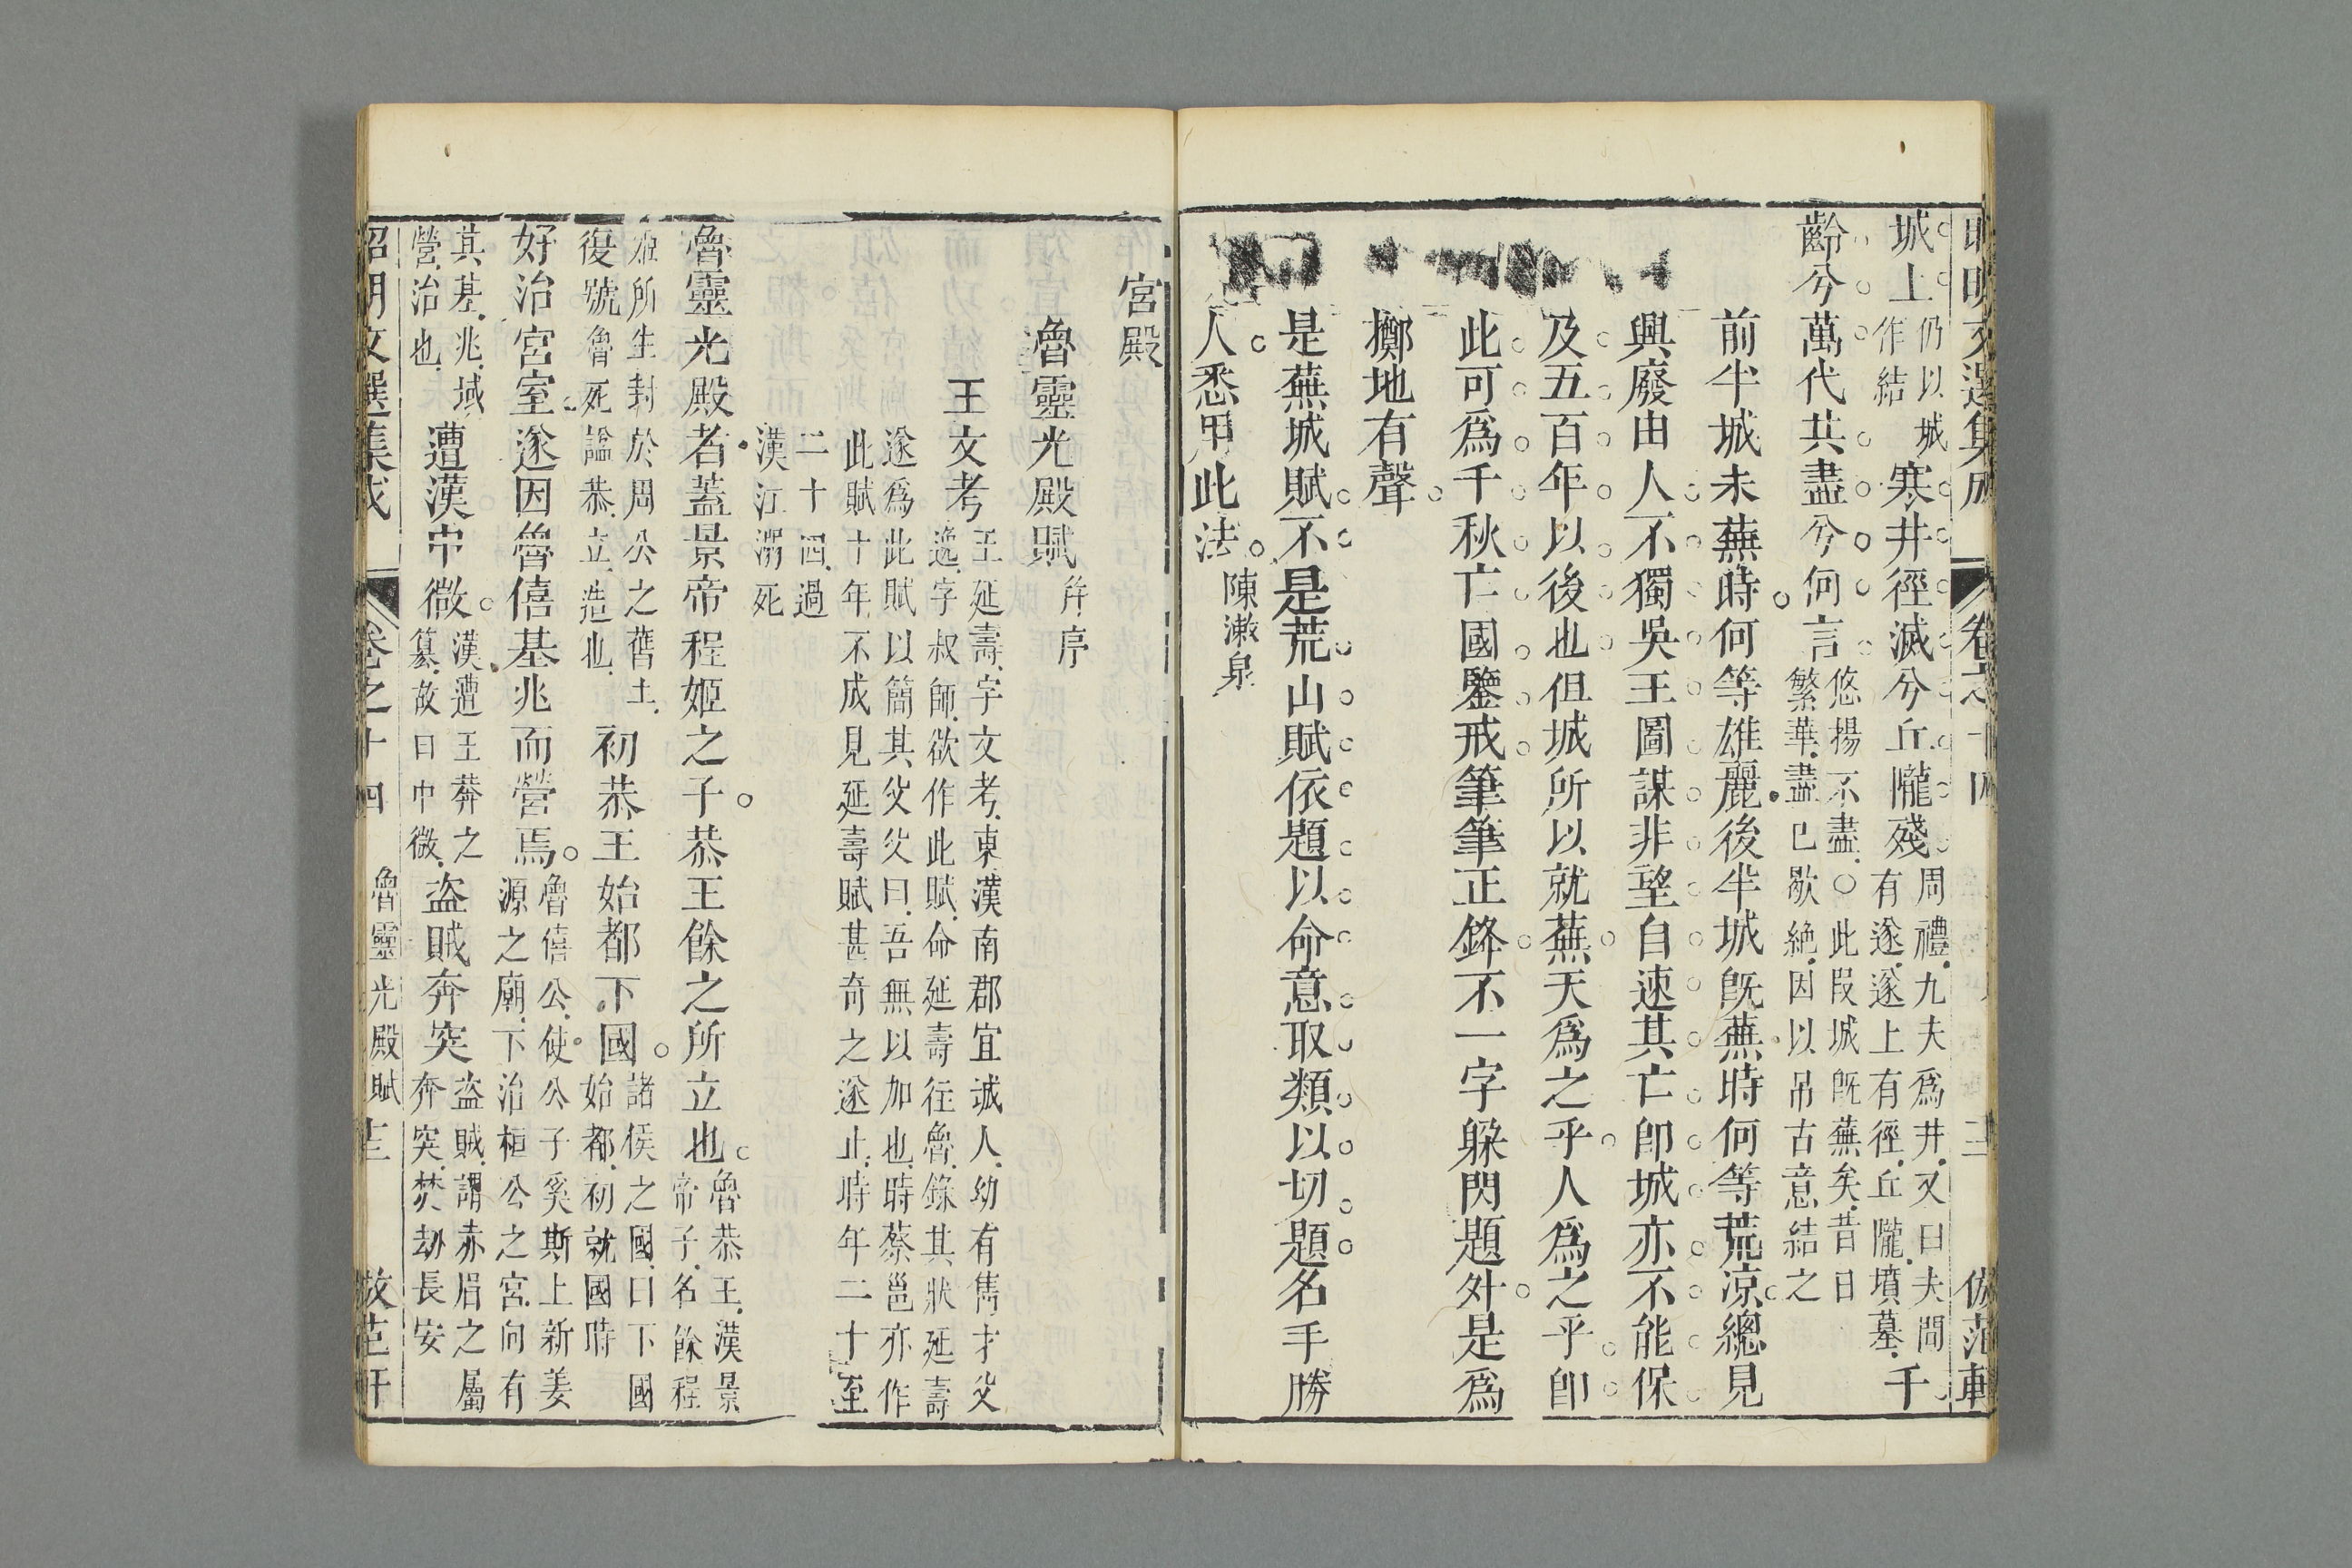 城上仍以城作結寒井徑滅兮丘隴殘周禮九夫爲井又曰夫間有遂遂上有徑丘隴墳墓千
齡兮萬代共盡兮何言悠揚不盡○此段城旣蕪矣昔日繁華盡已歇絶因以吊古意結之
前半城未蕪時何等雄麗後半城旣蕪時何等荒凉總見
興廢由人不獨吳王圖謀非望自速其亡卽城亦不能保
及五百年以後也但城所以就蕪天爲之乎人爲之乎卽
此可爲千秋亡國鑒戒筆筆正鋒不一字躲閃題外是爲
擲地有聲
是蕪城賦不是荒山賦依題以命意取類以切題名手勝
人悉用此法陳漱泉
宮殿
魯靈光殿賦并序
王文考王延壽字文考東漢南郡宜城人幼有雋才父逸字叔師欲作此賦命延壽往魯錄其狀延壽
遂爲此賦以簡其父父曰吾無以加也時蔡邕亦作此賦十年不成見延壽賦甚奇之遂止時年二十至
二十四過漢江溺死
魯靈光殿者蓋景帝程姬之子恭王餘之所立也魯恭王漢景帝子名餘程
姬所生封於周公之舊土復號魯死諡恭立造也初恭王始都下國諸侯之國曰下國始都初就國時
好治宮室遂因魯僖基兆而營焉魯僖公使公子奚斯上新姜源之廟下治桓公之宮向有
其基兆域營治也遭漢中微漢遭王莽之篡故曰中微盜賊奔突盜賊謂赤眉之屬奔突焚劫長安
昭明文選集成 卷之十四 魯靈光殿賦